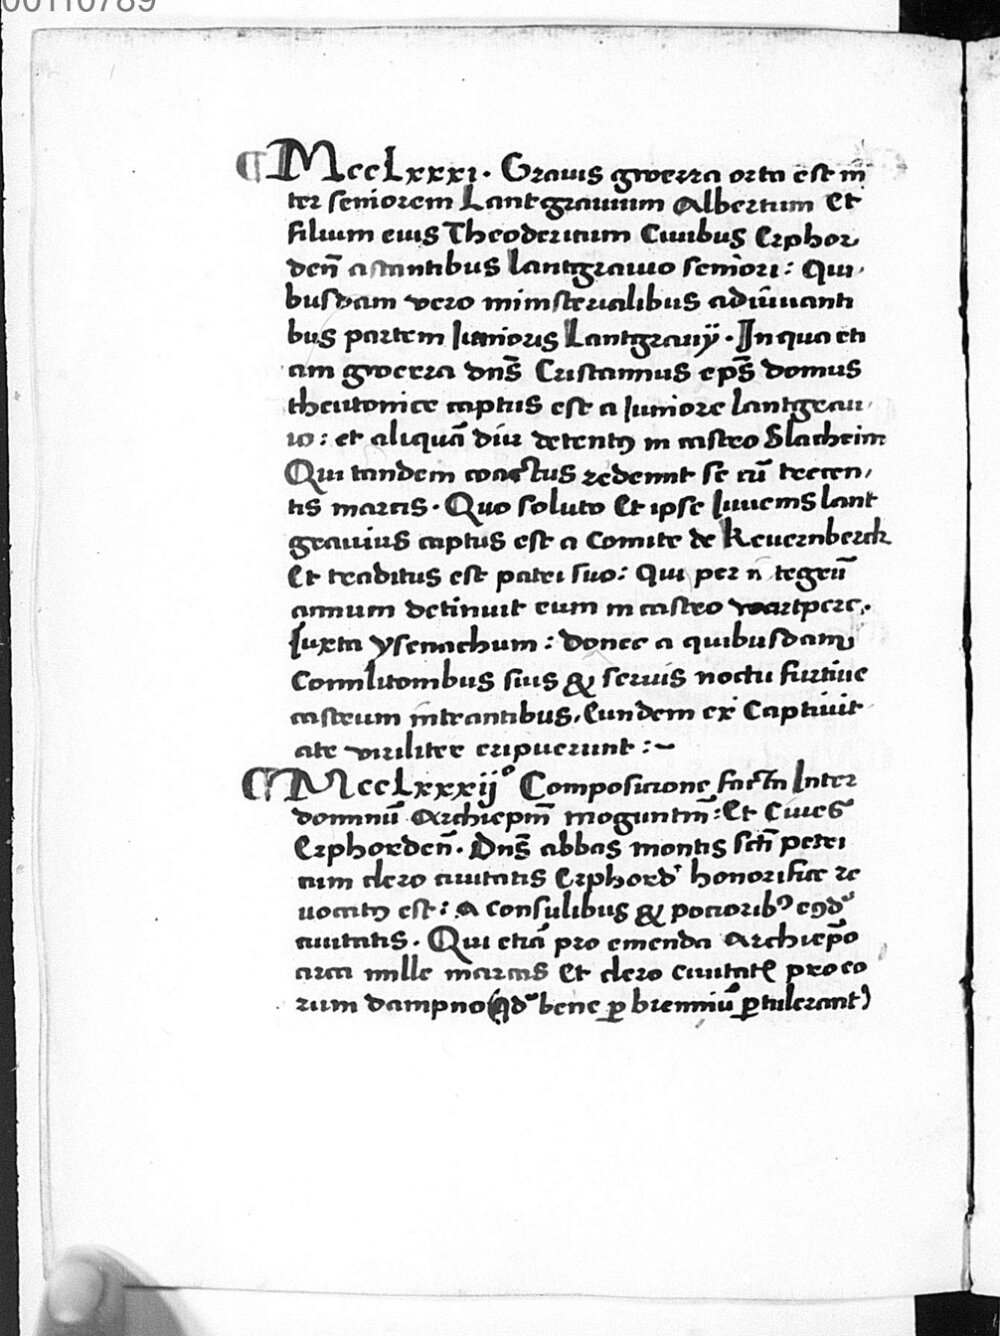 00110789
¶ MccLxxxi. Grauis gwerra orta est in̄
ter seniorem Lantgrauium Albertum Et
filium eius Theodericum Ciuibus Erphor
den̄ astantibus lantgrauio seniori: Qui
busdam vero ministerialibus adiuuanti
bus partem Iunioris Lantgrauij. In qua eti
am gwerra dn̄s Cristannus ep̄s domus
theutonice captus est a Iuniore lantgrau
io: et aliquā diu detentꝰ in castro Slatheim
Qui tandem coactus redemit se cū trecen
tis marcis. Quo soluto Et ipse Iuuenis lant
grauius captus est a Comite de Keuernberck
Et traditus est patri suo: Qui per
annum detinuit eum in castro wartperc.
Iuxta ysenachum: donec a quibusdam
Conmilitonibus suis & seruis noctu furtiue
castrum intrantibus, Eundem ex Captiuit
ate viriliter eripuerunt :~
¶ MccLxxxijº Composicione facta Inter
dominū Archiepm̄ moguntin̄: Et Ciues
Erphorden̄. Dn̄s abbas montis sct̄i petri
cum clero ciuitatis Erphord' honorifice re
uocatꝰ est: A Consulibus & pocioribꝰ
ciuitatis. Qui etiā pro emenda Archiep̄o
circa mille marcas Et clero ciuitatꝭ pro eo
rum dampno (qd' bene ꝑ bienniū ꝑtulerant)